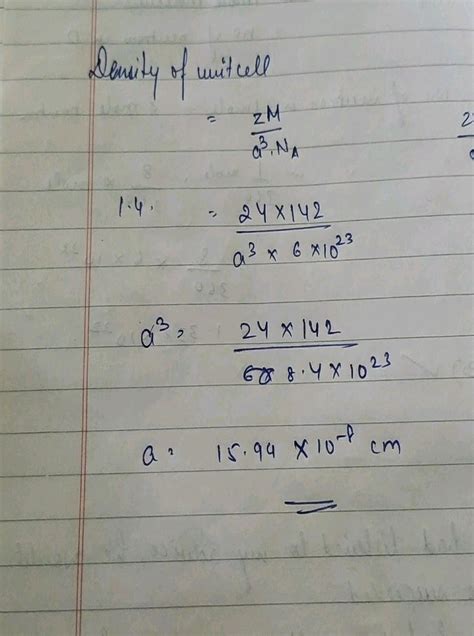 Density of unitcell
= zM / a³.N_A
1.4. = 24×142 / a³ × 6×10²³
a³ = 24×142 / 8.4×10²³
a = 15.94 ×10⁻⁸ cm